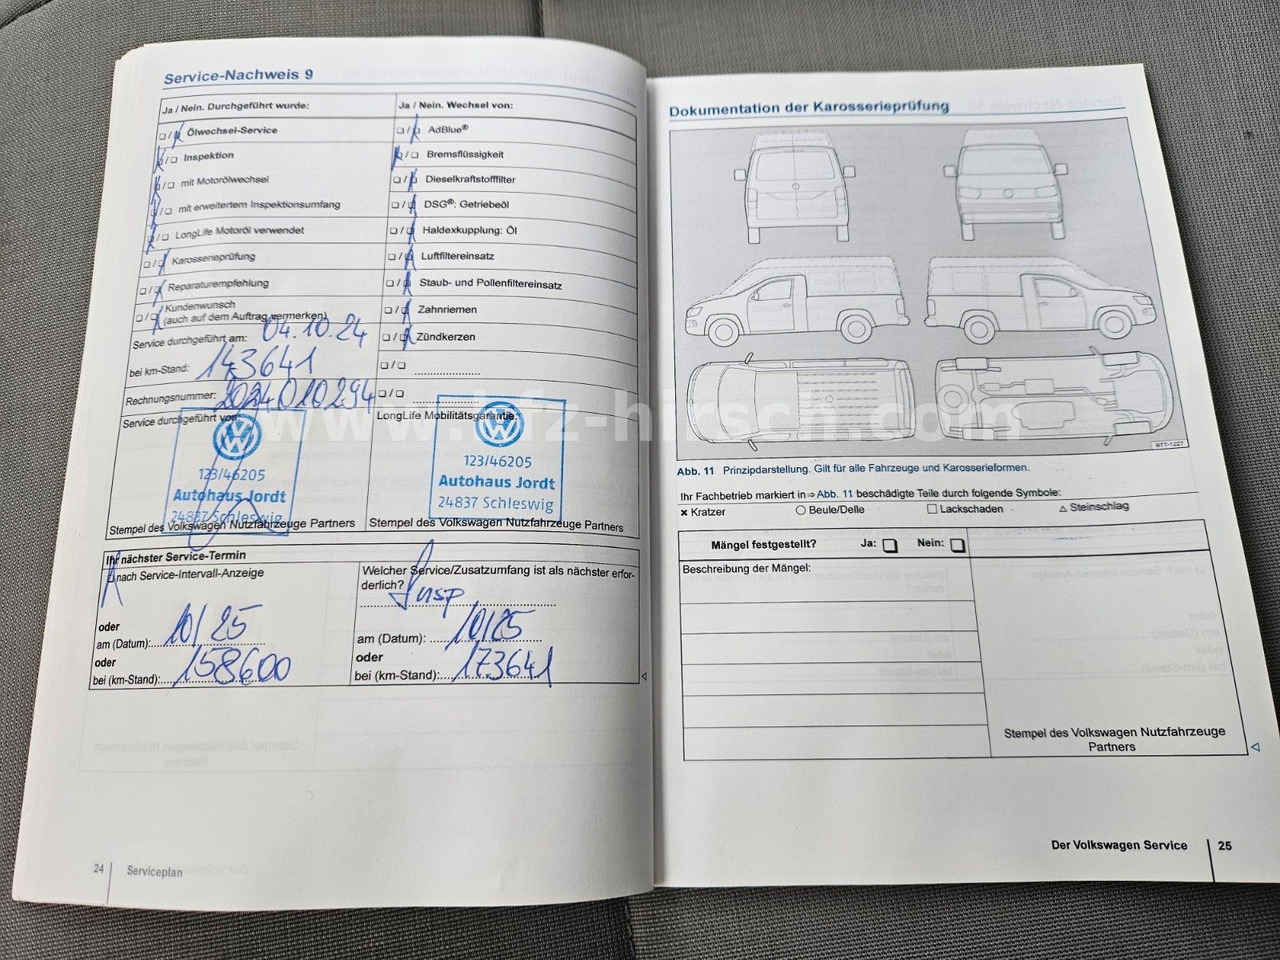 Service-Nachweis 9
Ja / Nein. Durchgeführt wurde:
❏ / ❏ Ölwechsel-Service
❏ / ❏ Inspektion
❏ / ❏ mit Motorölwechsel
❏ / ❏ mit erweitertem Inspektionsumfang
❏ / ❏ LongLife Motoröl verwendet
❏ / ❏ Karosserieprüfung
❏ / ❏ Reparaturempfehlung
❏ / ❏ Kundenwunsch
(auch auf dem Auftrag vermerken)
Service durchgeführt am: 04.10.24
bei km-Stand: 143641
Rechnungsnummer: 2024010294
Service durchgeführt von:
123/46205
Autohaus Jordt
24837 Schleswig
Stempel des Volkswagen Nutzfahrzeuge Partners
Ja / Nein. Wechsel von:
❏ / ❏ AdBlue®
❏ / ❏ Bremsflüssigkeit
❏ / ❏ Dieselkraftstofffilter
❏ / ❏ DSG®: Getriebeöl
❏ / ❏ Haldexkupplung: Öl
❏ / ❏ Luftfiltereinsatz
❏ / ❏ Staub- und Pollenfiltereinsatz
❏ / ❏ Zahnriemen
❏ / ❏ Zündkerzen
❏ / ❏
❏ / ❏
LongLife Mobilitätsgarantie:
123/46205
Autohaus Jordt
24837 Schleswig
Stempel des Volkswagen Nutzfahrzeuge Partners
Ihr nächster Service-Termin
❏ nach Service-Intervall-Anzeige
oder
am (Datum): 10/25
oder
bei (km-Stand): 158600
Welcher Service/Zusatzumfang ist als nächster erfor-
derlich? Insp
am (Datum): 10/25
oder
bei (km-Stand): 173641
24 Serviceplan
Dokumentation der Karosserieprüfung
BTT-1227
Abb. 11 Prinzipdarstellung. Gilt für alle Fahrzeuge und Karosserieformen.
Ihr Fachbetrieb markiert in ⇒ Abb. 11 beschädigte Teile durch folgende Symbole:
× Kratzer ○ Beule/Delle □ Lackschaden △ Steinschlag
Mängel festgestellt? Ja: ❏ Nein: ❏
Beschreibung der Mängel:
Stempel des Volkswagen Nutzfahrzeuge
Partners
Der Volkswagen Service 25
www.kfz-hirsch.com